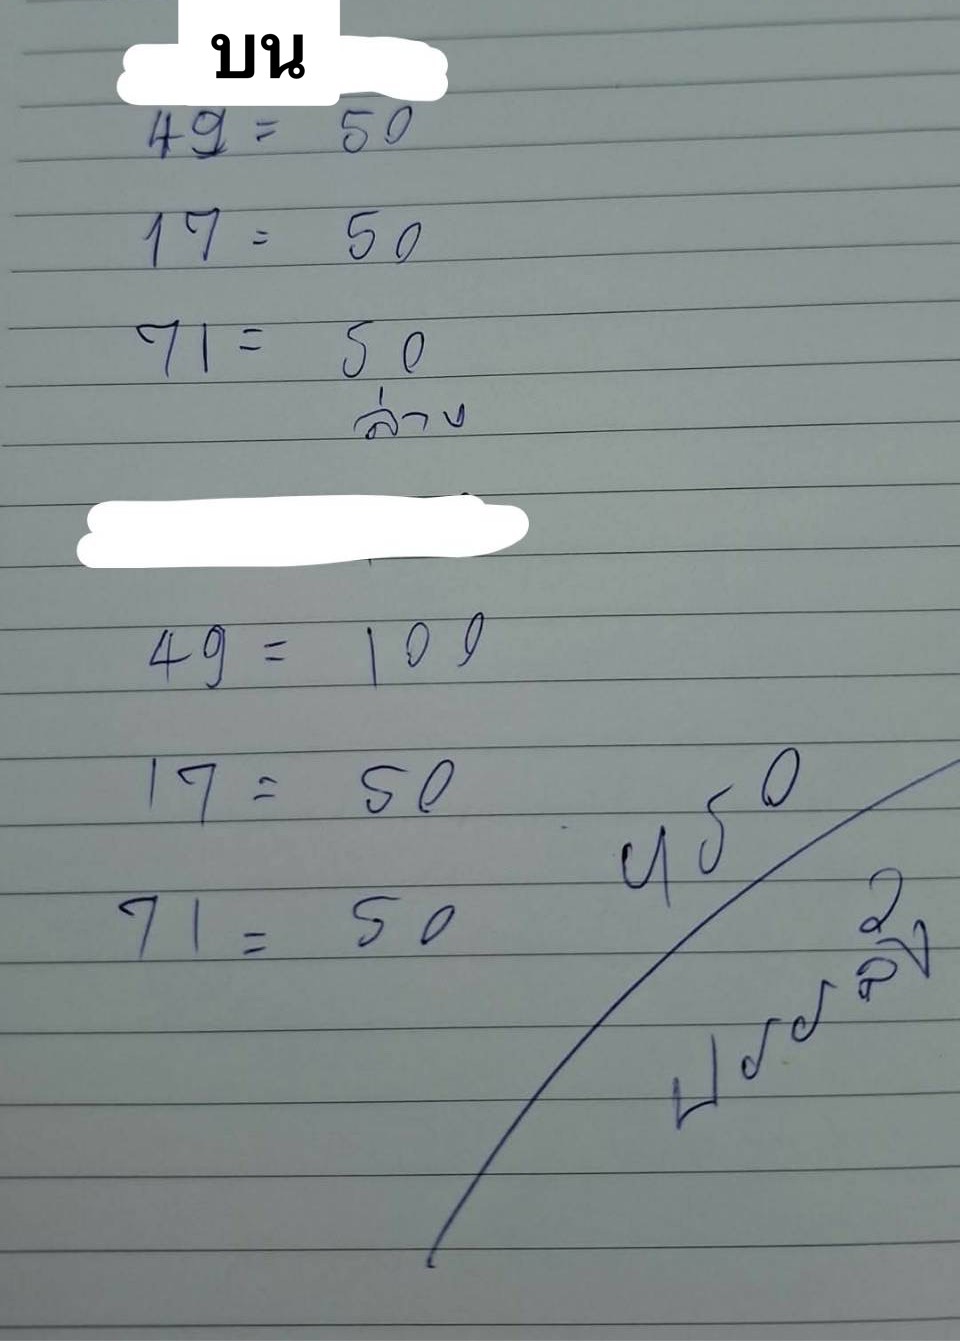 บน
49 = 50
17 = 50
71 = 50
ล่าง
49 = 100
17 = 50
71 = 50